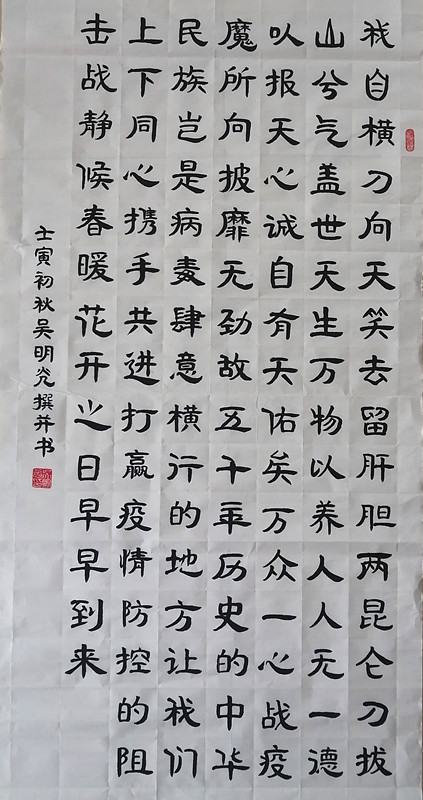 我自横刀向天笑去留肝胆两昆仑刀拔
山兮气盖世天生万物以养人人无一德
以报天心诚自有天佑矣万众一心战疫
魔所向披靡无劲故五千年历史的中华
民族岂是病毒肆意横行的地方让我们
上下同心携手共进打赢疫情防控的阻
击战静候春暖花开之日早早到来
壬寅初秋吴明光撰并书